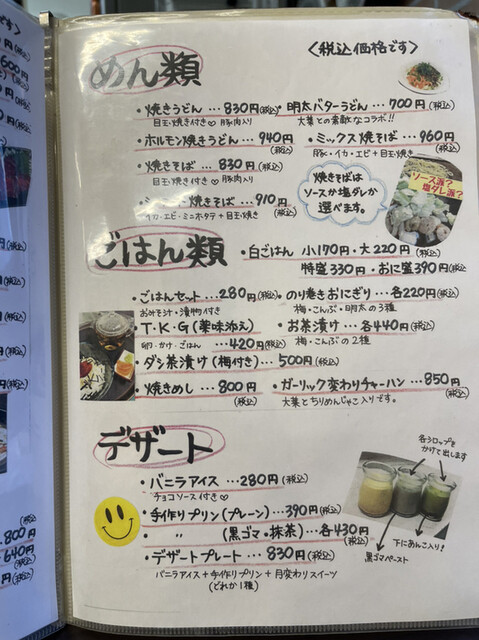 〈税込価格です〉
めん類
・焼きうどん…830円(税込)
目玉焼き付き♡豚肉入り
・明太バターうどん…700円(税込)
大葉との素敵なコラボ!!
・ホルモン焼きうどん…940円(税込)
・ミックス焼きそば…960円(税込)
豚・イカ・エビ+目玉焼き
・焼きそば…830円(税込)
目玉焼き付き♡豚肉入り
焼きそば…910円(税込)
イカ・エビ・ミニホタテ+目玉焼き
焼きそばは
ソースか塩ダレか
選べます。
ソース派?
塩ダレ派?
ごはん類
・白ごはん 小170円・大220円(税込)
特盛330円・おに盛390円(税込
・ごはんセット…280円(税込)
おみそ汁・漬物付
・のり巻きおにぎり…各220円(税込)
梅・こんぶ・明太の3種
・T・K・G(薬味添え)
卵・かけ・ごはん …420円(税込)
・お茶漬け…各440円(税込)
梅・こんぶの2種
・ダシ茶漬け(梅付き)…500円(税込)
・焼きめし…800円(税込)
・ガーリック変わりチャーハン…850円(税込)
大葉とちりめんじゃこ入りです。
デザート
・バニラアイス…280円(税込)
チョコソース付き♡
・手作りプリン(プレーン)…390円(税込)
・〃(黒ゴマ・抹茶)…各430円(税込)
・デザートプレート…830円(税込)
バニラアイス+手作りプリン+月変わりスイーツ
(どれか1種)
各シロップを
かけて出します
下にあんこ入り!
黒ゴマペースト